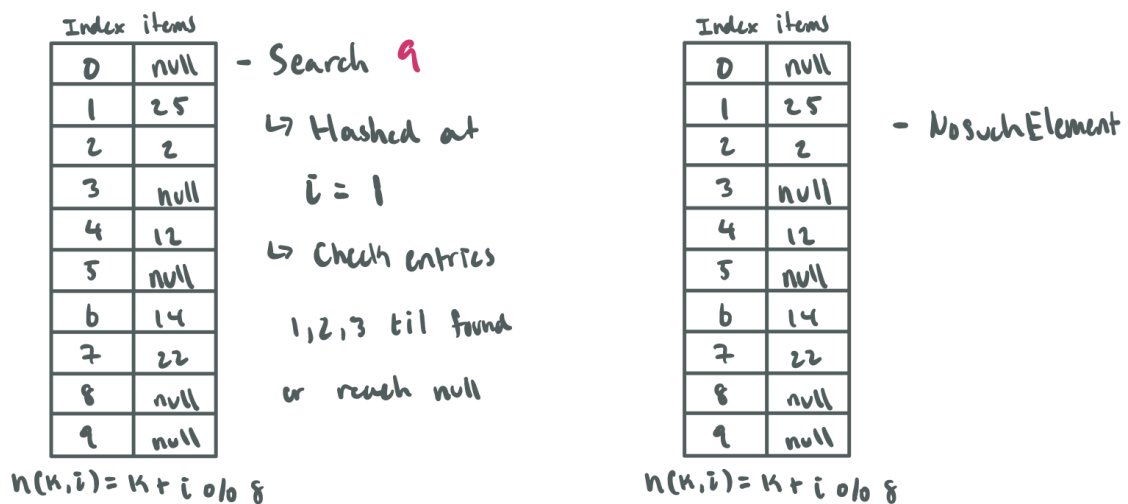 Index items
0 null
1 25
2 2
3 null
4 12
5 null
6 14
7 22
8 null
9 null
h(k,i) = k + i % 8
- Search 9
↳ Hashed at
i = 1
↳ Check entries
1,2,3 til found
or reach null
Index items
0 null
1 25
2 2
3 null
4 12
5 null
6 14
7 22
8 null
9 null
h(k,i) = k + i % 8
- NosuchElement